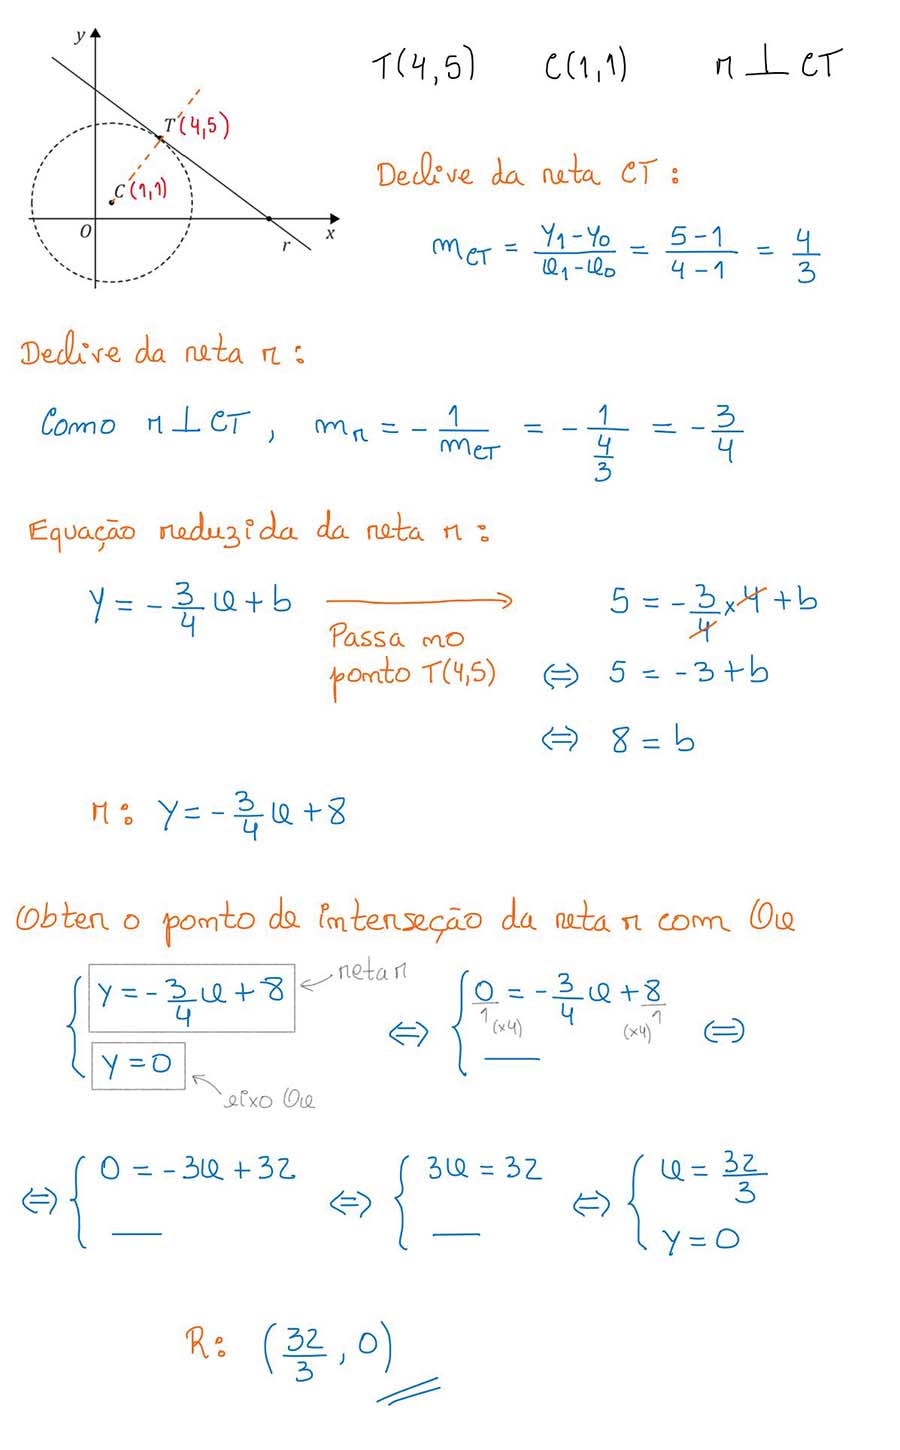 y
T(4,5) C(1,1) r ⊥ CT
T(4,5)
Declive da reta CT:
C(1,1)
O
r
x
m_CT = (y₁-y₀)/(x₁-x₀) = (5-1)/(4-1) = 4/3
Declive da reta r:
Como r ⊥ CT, m_r = -1/m_CT = -1/(4/3) = -3/4
Equação reduzida da reta r:
y = -3/4 x + b → 5 = -3/4 × 4 + b
Passa no
ponto T(4,5) ⇔ 5 = -3 + b
⇔ 8 = b
r: y = -3/4 x + 8
Obter o ponto de interseção da reta r com Ox
{ y = -3/4 x + 8 ← reta r ⇔ { 0 = -3/4 x + 8 ⇔
1 (×4) (×4) 1
y = 0 ___
eixo Ox
⇔ { 0 = -3x + 32 ⇔ { 3x = 32 ⇔ { x = 32/3
___ ___ y = 0
R: (32/3, 0)